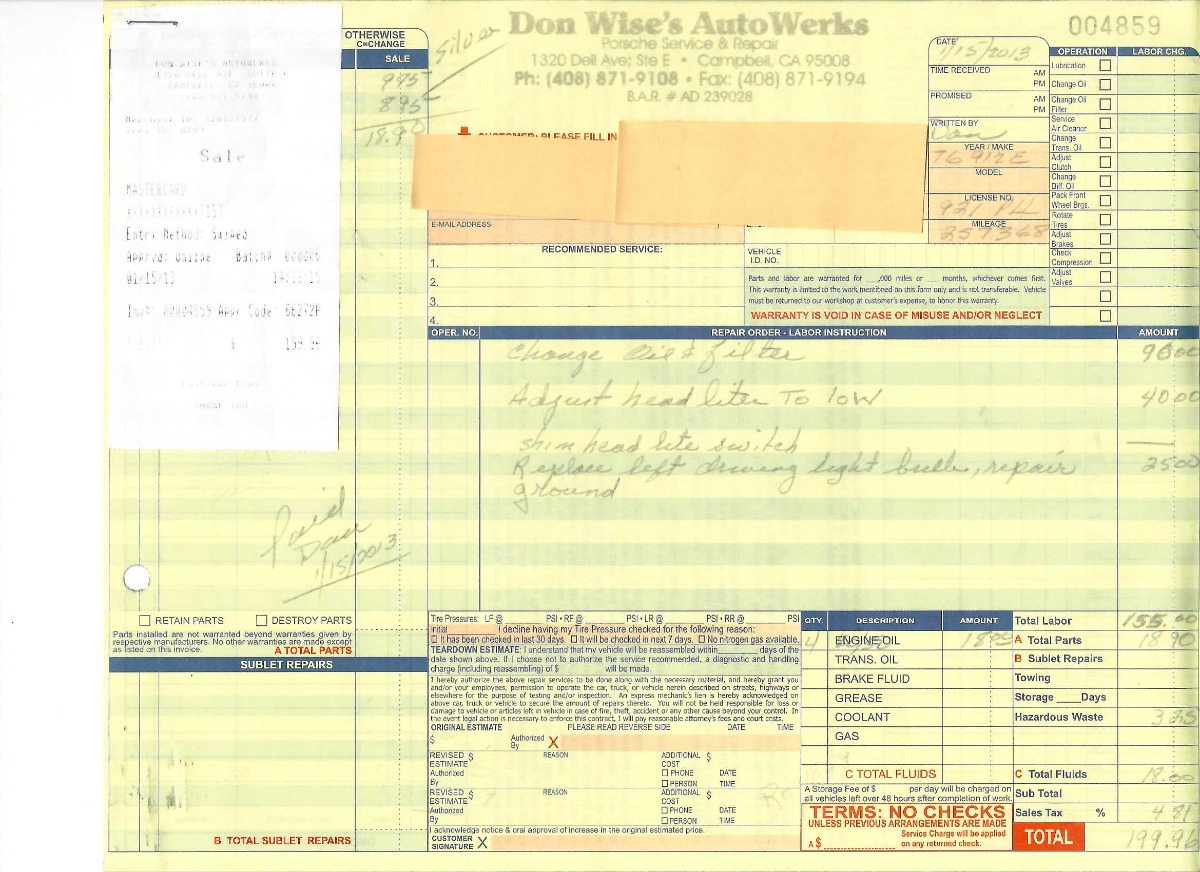 Don Wise's AutoWerks
Porsche Service & Repair
1320 Dell Ave; Ste E • Campbell, CA 95008
Ph: (408) 871-9108 • Fax: (408) 871-9194
B.A.R. # AD 239028
004859
Silver
OTHERWISE
C=CHANGE
SALE
995
895
18.90
DON WISE'S AUTOWERKS
Sale
MASTERCARD
Entry Method: Swiped
Apprvd: Online Batch#
01/15/13
Appr Code:
$
THANK YOU
CUSTOMER: PLEASE FILL IN
E-MAIL ADDRESS
DATE 1/15/2013
TIME RECEIVED AM PM
PROMISED AM PM
WRITTEN BY
Don
YEAR / MAKE
76 912E
MODEL
LICENSE NO.
921 PLL
MILEAGE
257368
OPERATION LABOR CHG.
Lubrication
Change Oil
Change Oil Filter
Service Air Cleaner
Change Trans. Oil
Adjust Clutch
Change Diff. Oil
Pack Front Wheel Brgs.
Rotate Tires
Adjust Brakes
Check Compression
Adjust Valves
RECOMMENDED SERVICE:
1.
2.
3.
4.
VEHICLE
I.D. NO.
Parts and labor are warranted for ___,000 miles or ___ months, whichever comes first.
This warranty is limited to the work mentioned on this form only and is not transferable. Vehicle
must be returned to our workshop at customer's expense, to honor this warranty.
WARRANTY IS VOID IN CASE OF MISUSE AND/OR NEGLECT
OPER. NO. REPAIR ORDER - LABOR INSTRUCTION AMOUNT
Change Oil & filter 9000
Adjust head liter To low 4000
shim head lite switch —
Replace left driving light bulb, repair 2500
ground
Paid
Don
1/15/2013
RETAIN PARTS DESTROY PARTS
Parts installed are not warranted beyond warranties given by
respective manufacturers. No other warranties are made except
as listed on this invoice. A TOTAL PARTS
SUBLET REPAIRS
B TOTAL SUBLET REPAIRS
Tire Pressures: LF @ PSI • RF @ PSI • LR @ PSI • RR @ PSI
Initial I decline having my Tire Pressure checked for the following reason:
It has been checked in last 30 days. It will be checked in next 7 days. No nitrogen gas available.
TEARDOWN ESTIMATE: I understand that my vehicle will be reassembled within________ days of the
date shown above. If I choose not to authorize the service recommended, a diagnostic and handling
charge (including reassembling) of $ will be made.
I hereby authorize the above repair services to be done along with the necessary material, and hereby grant you
and/or your employees, permission to operate the car, truck, or vehicle herein described on streets, highways or
elsewhere for the purpose of testing and/or inspection. An express mechanic's lien is hereby acknowledged on
above car, truck or vehicle to secure the amount of repairs thereto. You will not be held responsible for loss or
damage to vehicle or articles left in vehicle in case of fire, theft, accident or any other cause beyond your control. In
the event legal action is necessary to enforce this contract, I will pay reasonable attorney's fees and court costs.
ORIGINAL ESTIMATE PLEASE READ REVERSE SIDE DATE TIME
$ Authorized By X
REVISED ESTIMATE $ REASON ADDITIONAL COST $
Authorized By PHONE DATE
PERSON TIME
REVISED ESTIMATE $ REASON ADDITIONAL COST $
Authorized By PHONE DATE
PERSON TIME
I acknowledge notice & oral approval of increase in the original estimated price.
CUSTOMER SIGNATURE X
QTY. DESCRIPTION AMOUNT
4 ENGINE OIL
TRANS. OIL
BRAKE FLUID
GREASE
COOLANT
GAS
C TOTAL FLUIDS
A Storage Fee of $ per day will be charged on
all vehicles left over 48 hours after completion of work.
TERMS: NO CHECKS
UNLESS PREVIOUS ARRANGEMENTS ARE MADE
Service Charge will be applied
A $ on any returned check.
Total Labor 155.00
A Total Parts 18 90
B Sublet Repairs
Towing
Storage ____Days
Hazardous Waste 3 25
C Total Fluids 18.00
Sub Total
Sales Tax % 4 81
TOTAL 199.96